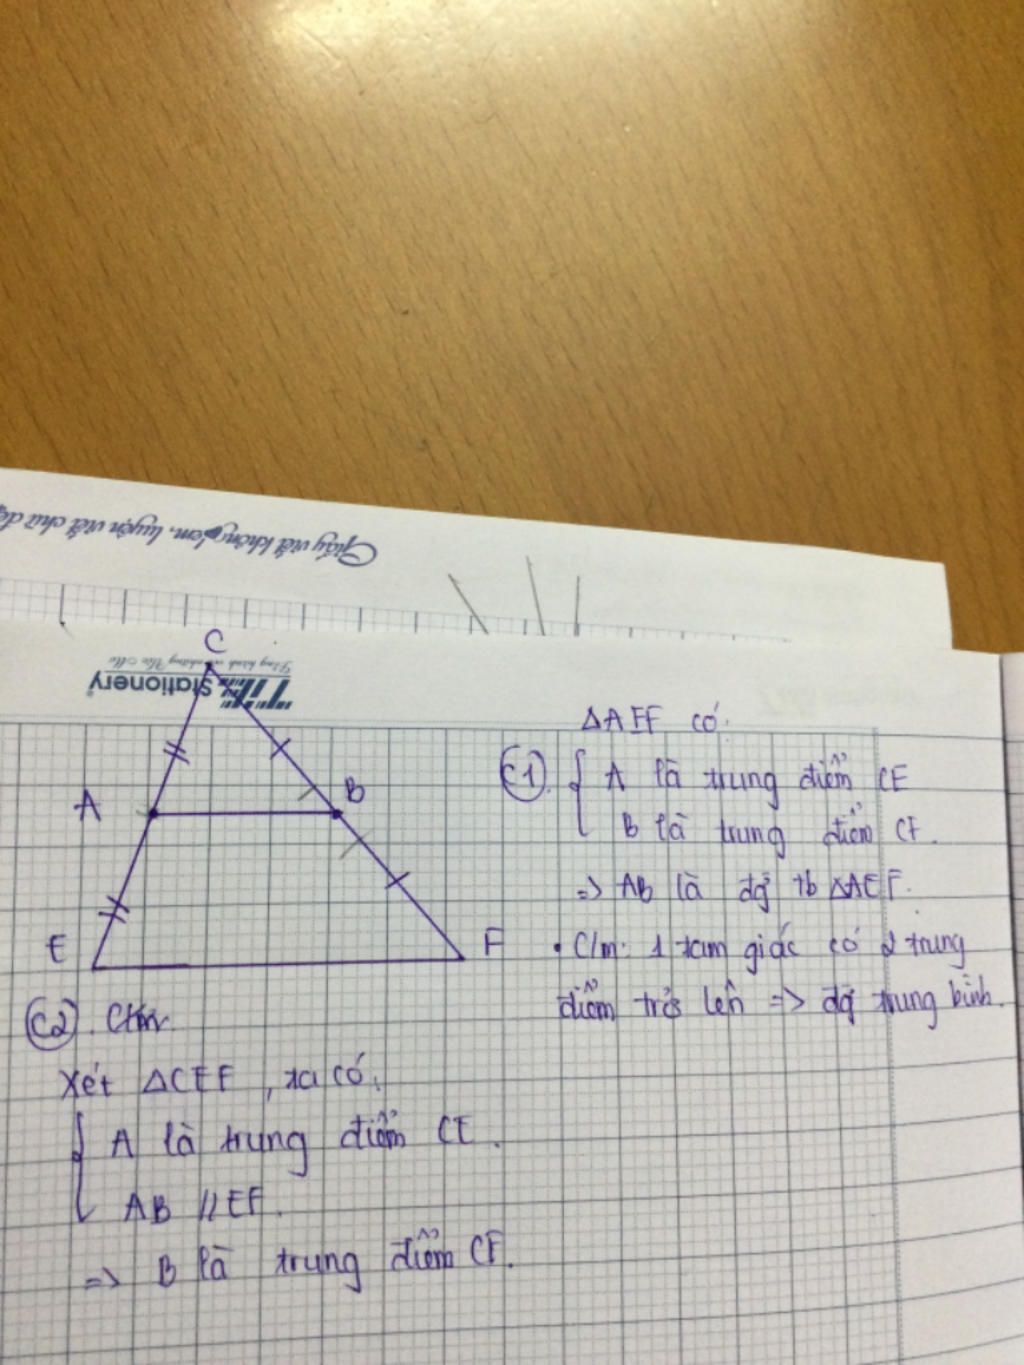 Giấy viết không lem, luyện viết chữ
C
Stationery
A
B
E
F
ΔAEF có:
C1. { A là trung điểm CE
B là trung điểm CF.
=> AB là đg tb ΔAEF.
• C/m: 1 tam giác có 2 trung
điểm trở lên => đg trung bình.
C2. C/m
Xét ΔCEF, ta có:
{ A là trung điểm CE.
AB // EF.
=> B là trung điểm CF.